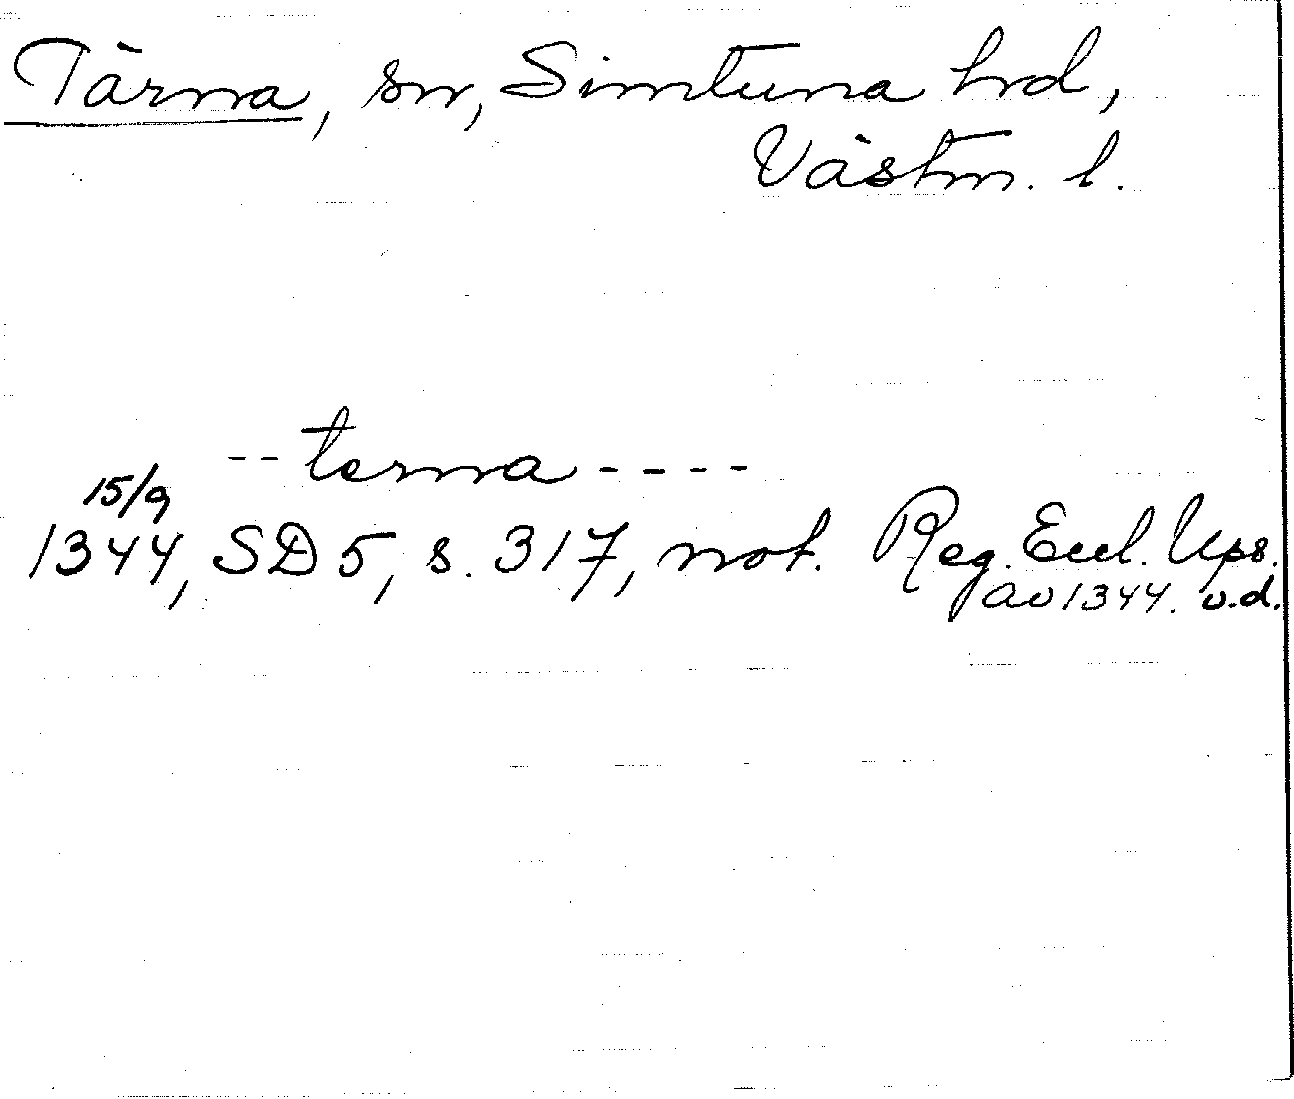 Tärna, sn, Simtuna hrd,
Västm. l.
-- terna ----
15/9
1344, SD 5, s. 317, not. Reg. Eccl. Ups.
av 1344. o.d.